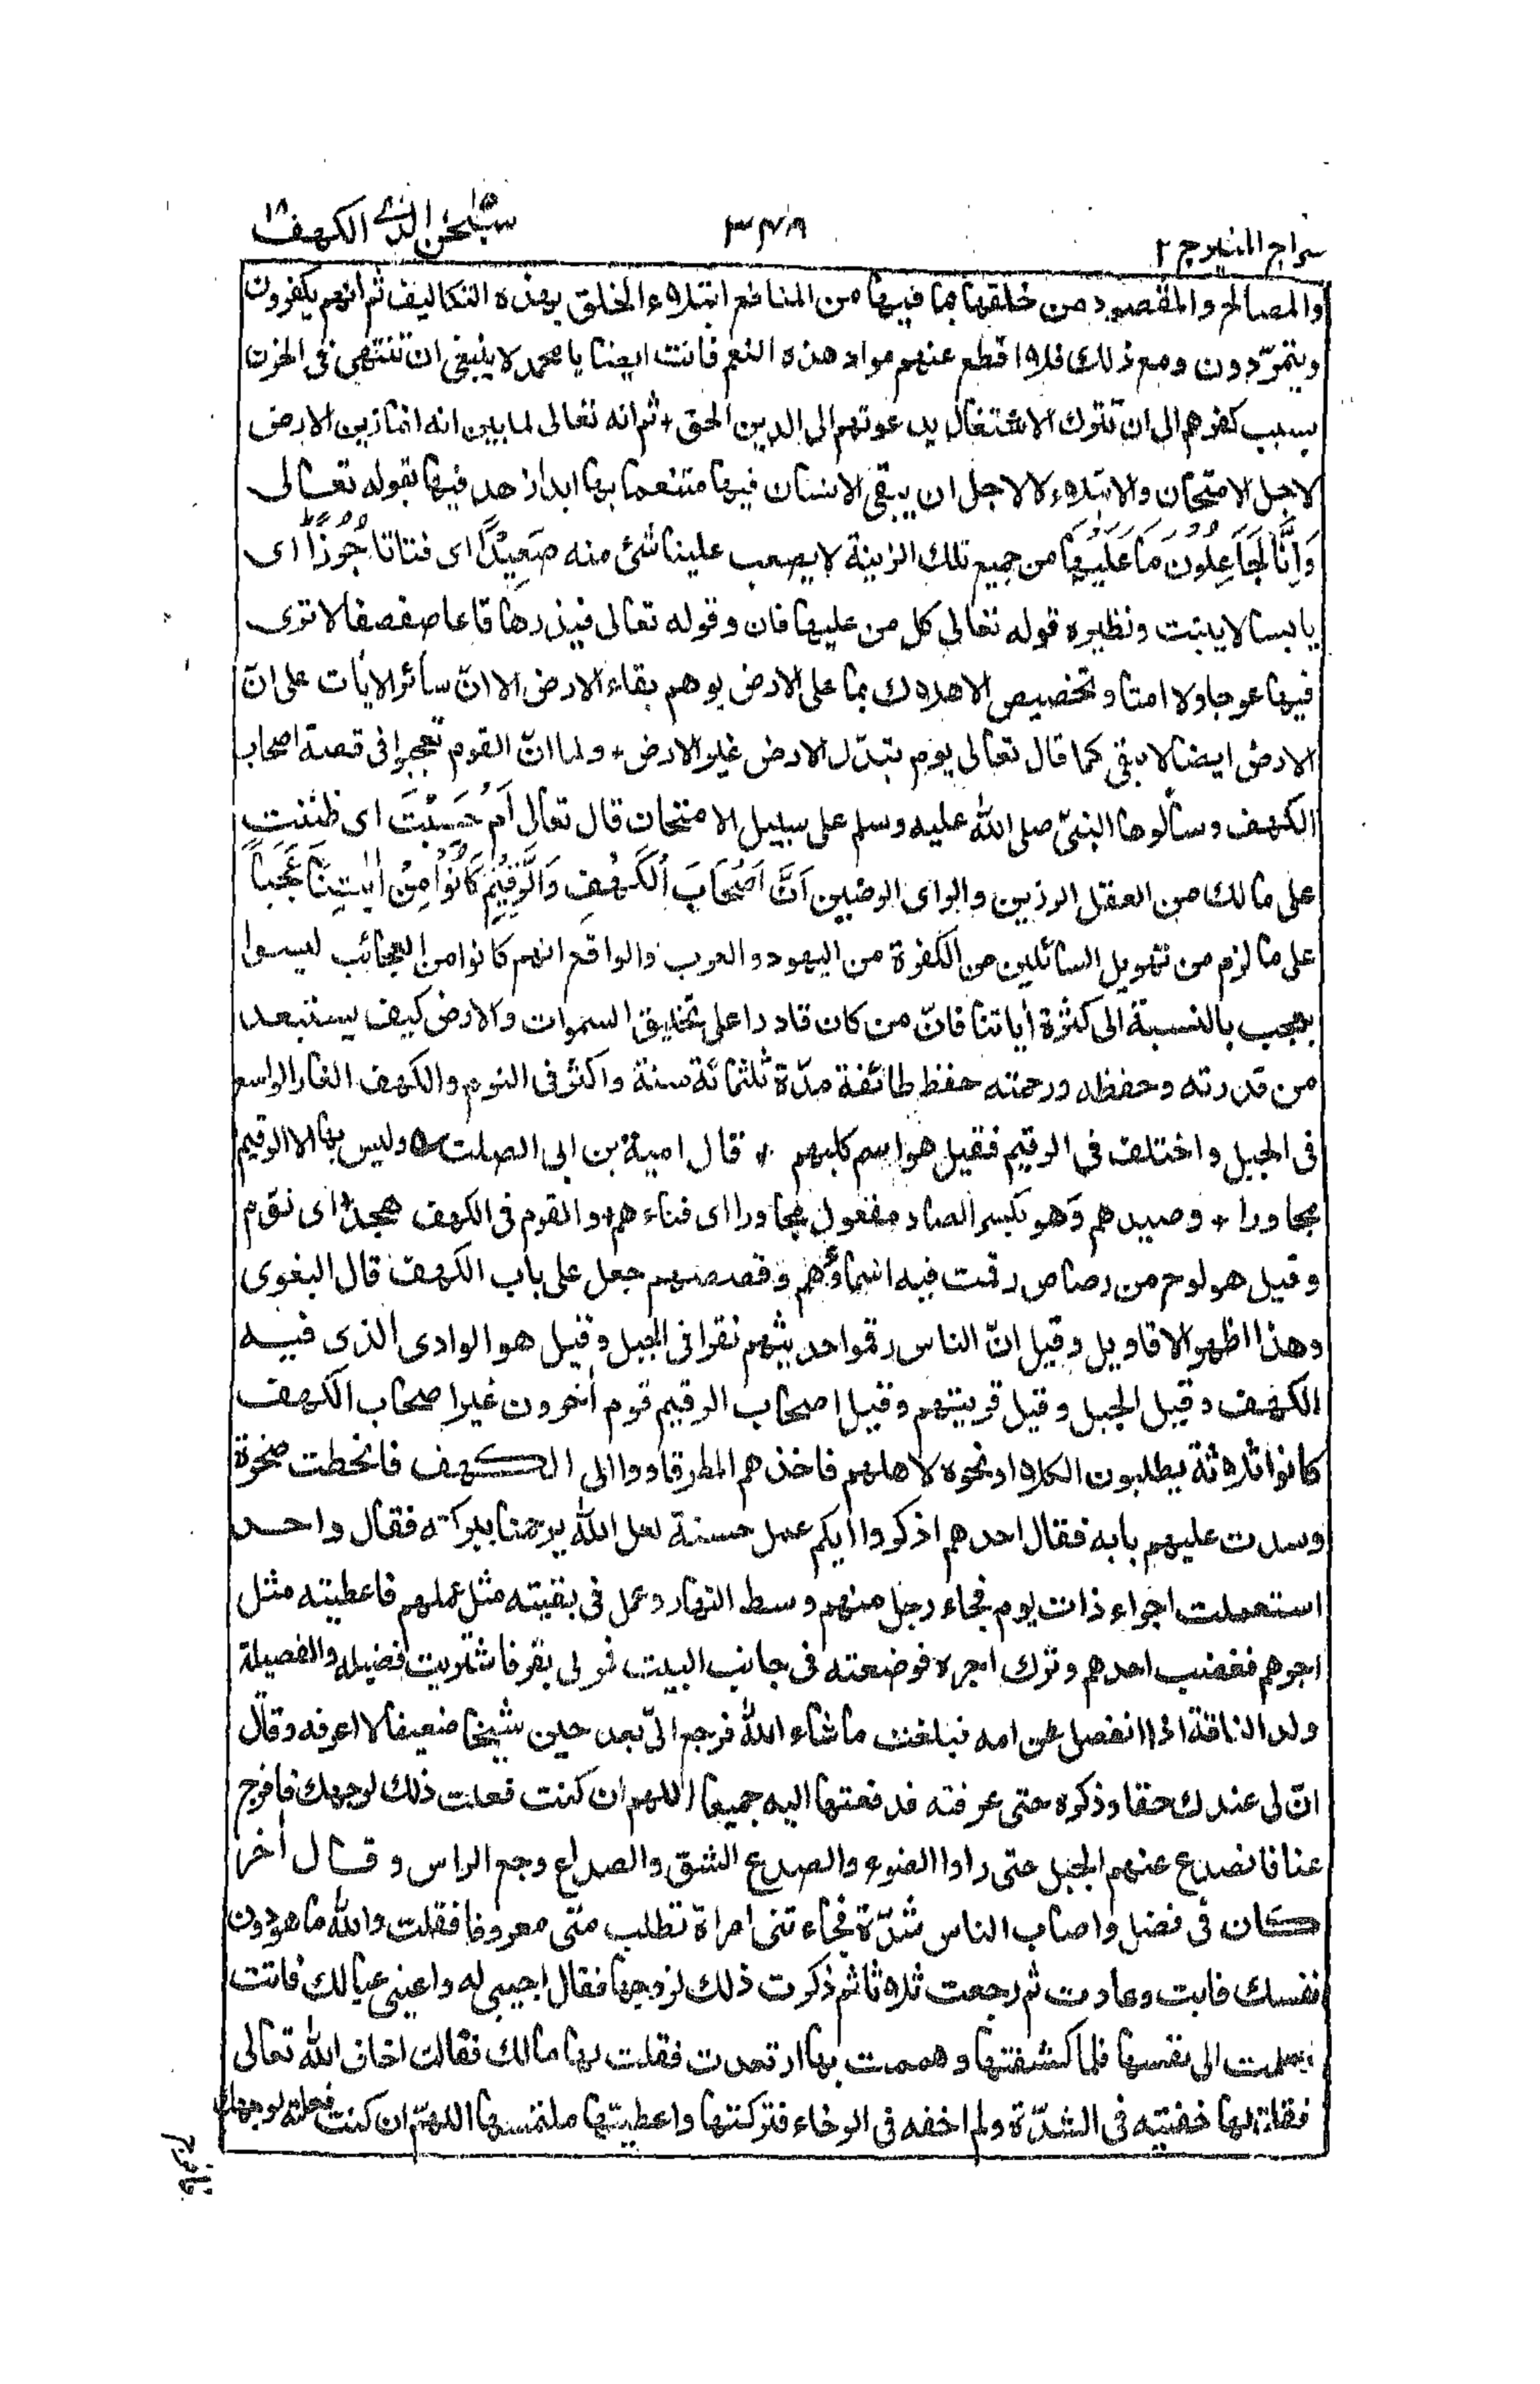 سراج المنير ج ٢
٣٤٨
سبحٰن الذى ١٥ الكهف ١٨
والمصالح والمقصود من خلقها بما فيها من المنافع ابتلاء الخلق بهذه التكاليف ثم انهم يكفرون
ويتمرّدون ومع ذلك فلا اقطع عنهم مواد هذه النعم فانت ايضا يا محمد لا ينبغى ان تنتهى فى الحزن
بسبب كفرهم الى ان تترك الاشتغال بدعوتهم الى الدين الحق + ثم انه تعالى لما بين انه انما زين الارض
لاجل الامتحان والابتلاء لا لاجل ان يبقى الانسان فيها متنعما بها ابدا زهد فيها بقوله تعالى
وَاِنَّا لَجَاعِلُوْنَ مَا عَلَيْهَا من جميع تلك الزينة لا يصعب علينا شئ منه صَعِيْدًا اى فتاتا جُرُزًا ط اى
يابسا لا ينبت ونظيره قوله تعالى كل من عليها فان وقوله تعالى فيذرها قاعا صفصفا لا ترى
فيها عوجا ولا امتا وتخصيص الاهلاك بما على الارض يوهم بقاء الارض الا انّ سائر الأيات على انّ
الارض ايضا لا تبقى كما قال تعالى يوم تبدّل الارض غير الارض + ولما انّ القوم تعجبوا فى قصة اصحاب
الكهف وسألوها النبىّ صلى الله عليه وسلم على سبيل الامتحان قال تعالى اَمْ حَسِبْتَ اى ظننت
على مالك من العقل الرزين والراى الرضين اَنَّ اَصْحَابَ الْكَهْفِ وَالرَّقِيْمِ كَانُوْا مِنْ اٰيٰتِنَا عَجَبًا
على ما لزم من تهويل السائلين من الكفرة من اليهود والعرب والواقع انهم كانوا من العجائب ليسوا
بعجب بالنسبة الى كثرة أياتنا فانّ من كان قادرا على تخليق السموات والارض كيف يستبعد
من قدرته وحفظه ورحمته حفظ طائفة مدّة ثلثمائة سنة واكثر فى النوم والكهف الغار الواسع
فى الجبل واختلف فى الرقيم فقيل هو اسم كلبهم + قال امية بن ابى الصلت ه وليس بها الا الرقيم
مجاورا + وصيدهم وهو بكسر الصاد مفعول مجاورا اى فناءهم + والقوم فى الكهف هجدا اى نوّم
وقيل هو لوح من رصاص رقمت فيه اسماؤهم وقصصهم جعل على باب الكهف قال البغوى
وهذا اظهر الاقاويل وقيل انّ الناس رقموا حديثهم نقرا فى الجبل وقيل هو الوادى الذى فيه
الكهف وقيل الجبل وقيل قريتهم وقيل اصحاب الرقيم قوم أخرون غير اصحاب الكهف
كانوا ثلاثة يطلبون الكلا او نحوه لاهلهم فاخذهم المطر فاووا الى الكهف فانحطت صخرة
وسدت عليهم بابه فقال احدهم اذكروا أيكم عمل حسنة لعل الله يرحمنا ببركته فقال واحد
استعملت اجراء ذات يوم فجاء رجل منهم وسط النهار وعمل فى بقيته مثل عملهم فاعطيته مثل
اجرهم فغضب احدهم وترك اجره فوضعته فى جانب البيت فمر بى بقر فاشتريت فصيلة والفصيلة
ولد الناقة اذا انفصل عن امه فبلغت ما شاء الله فرجع الىّ بعد حين شيخا ضعيفا لا اعرفه وقال
انّ لى عندك حقا وذكره حتى عرفته فدفعتها اليه جميعا اللهم ان كنت فعلت ذلك لوجهك فافرج
عنا فانصدع عنهم الجبل حتى راوا الضوء والصدع الشق والصداع وجع الراس وقال أخر
كان فى فضل واصاب الناس شدّة فجاءتنى امراة تطلب منى معروفا فقلت والله ما هو دون
نفسك فابت وعادت ثم رجعت ثلاثا ثم ذكرت ذلك لزوجها فقال اجيبى له واعينى عيالك فاتت
وسلمت الى نفسها فلما كشفتها وهممت بها ارتعدت فقلت لها مالك فقالت اخاف الله تعالى
فقلت لها خفتيه فى الشدّة ولم اخفه فى الرخاء فتركتها واعطيتها ملتمسها اللهمّ ان كنت فعلته لوجهك
فافرج